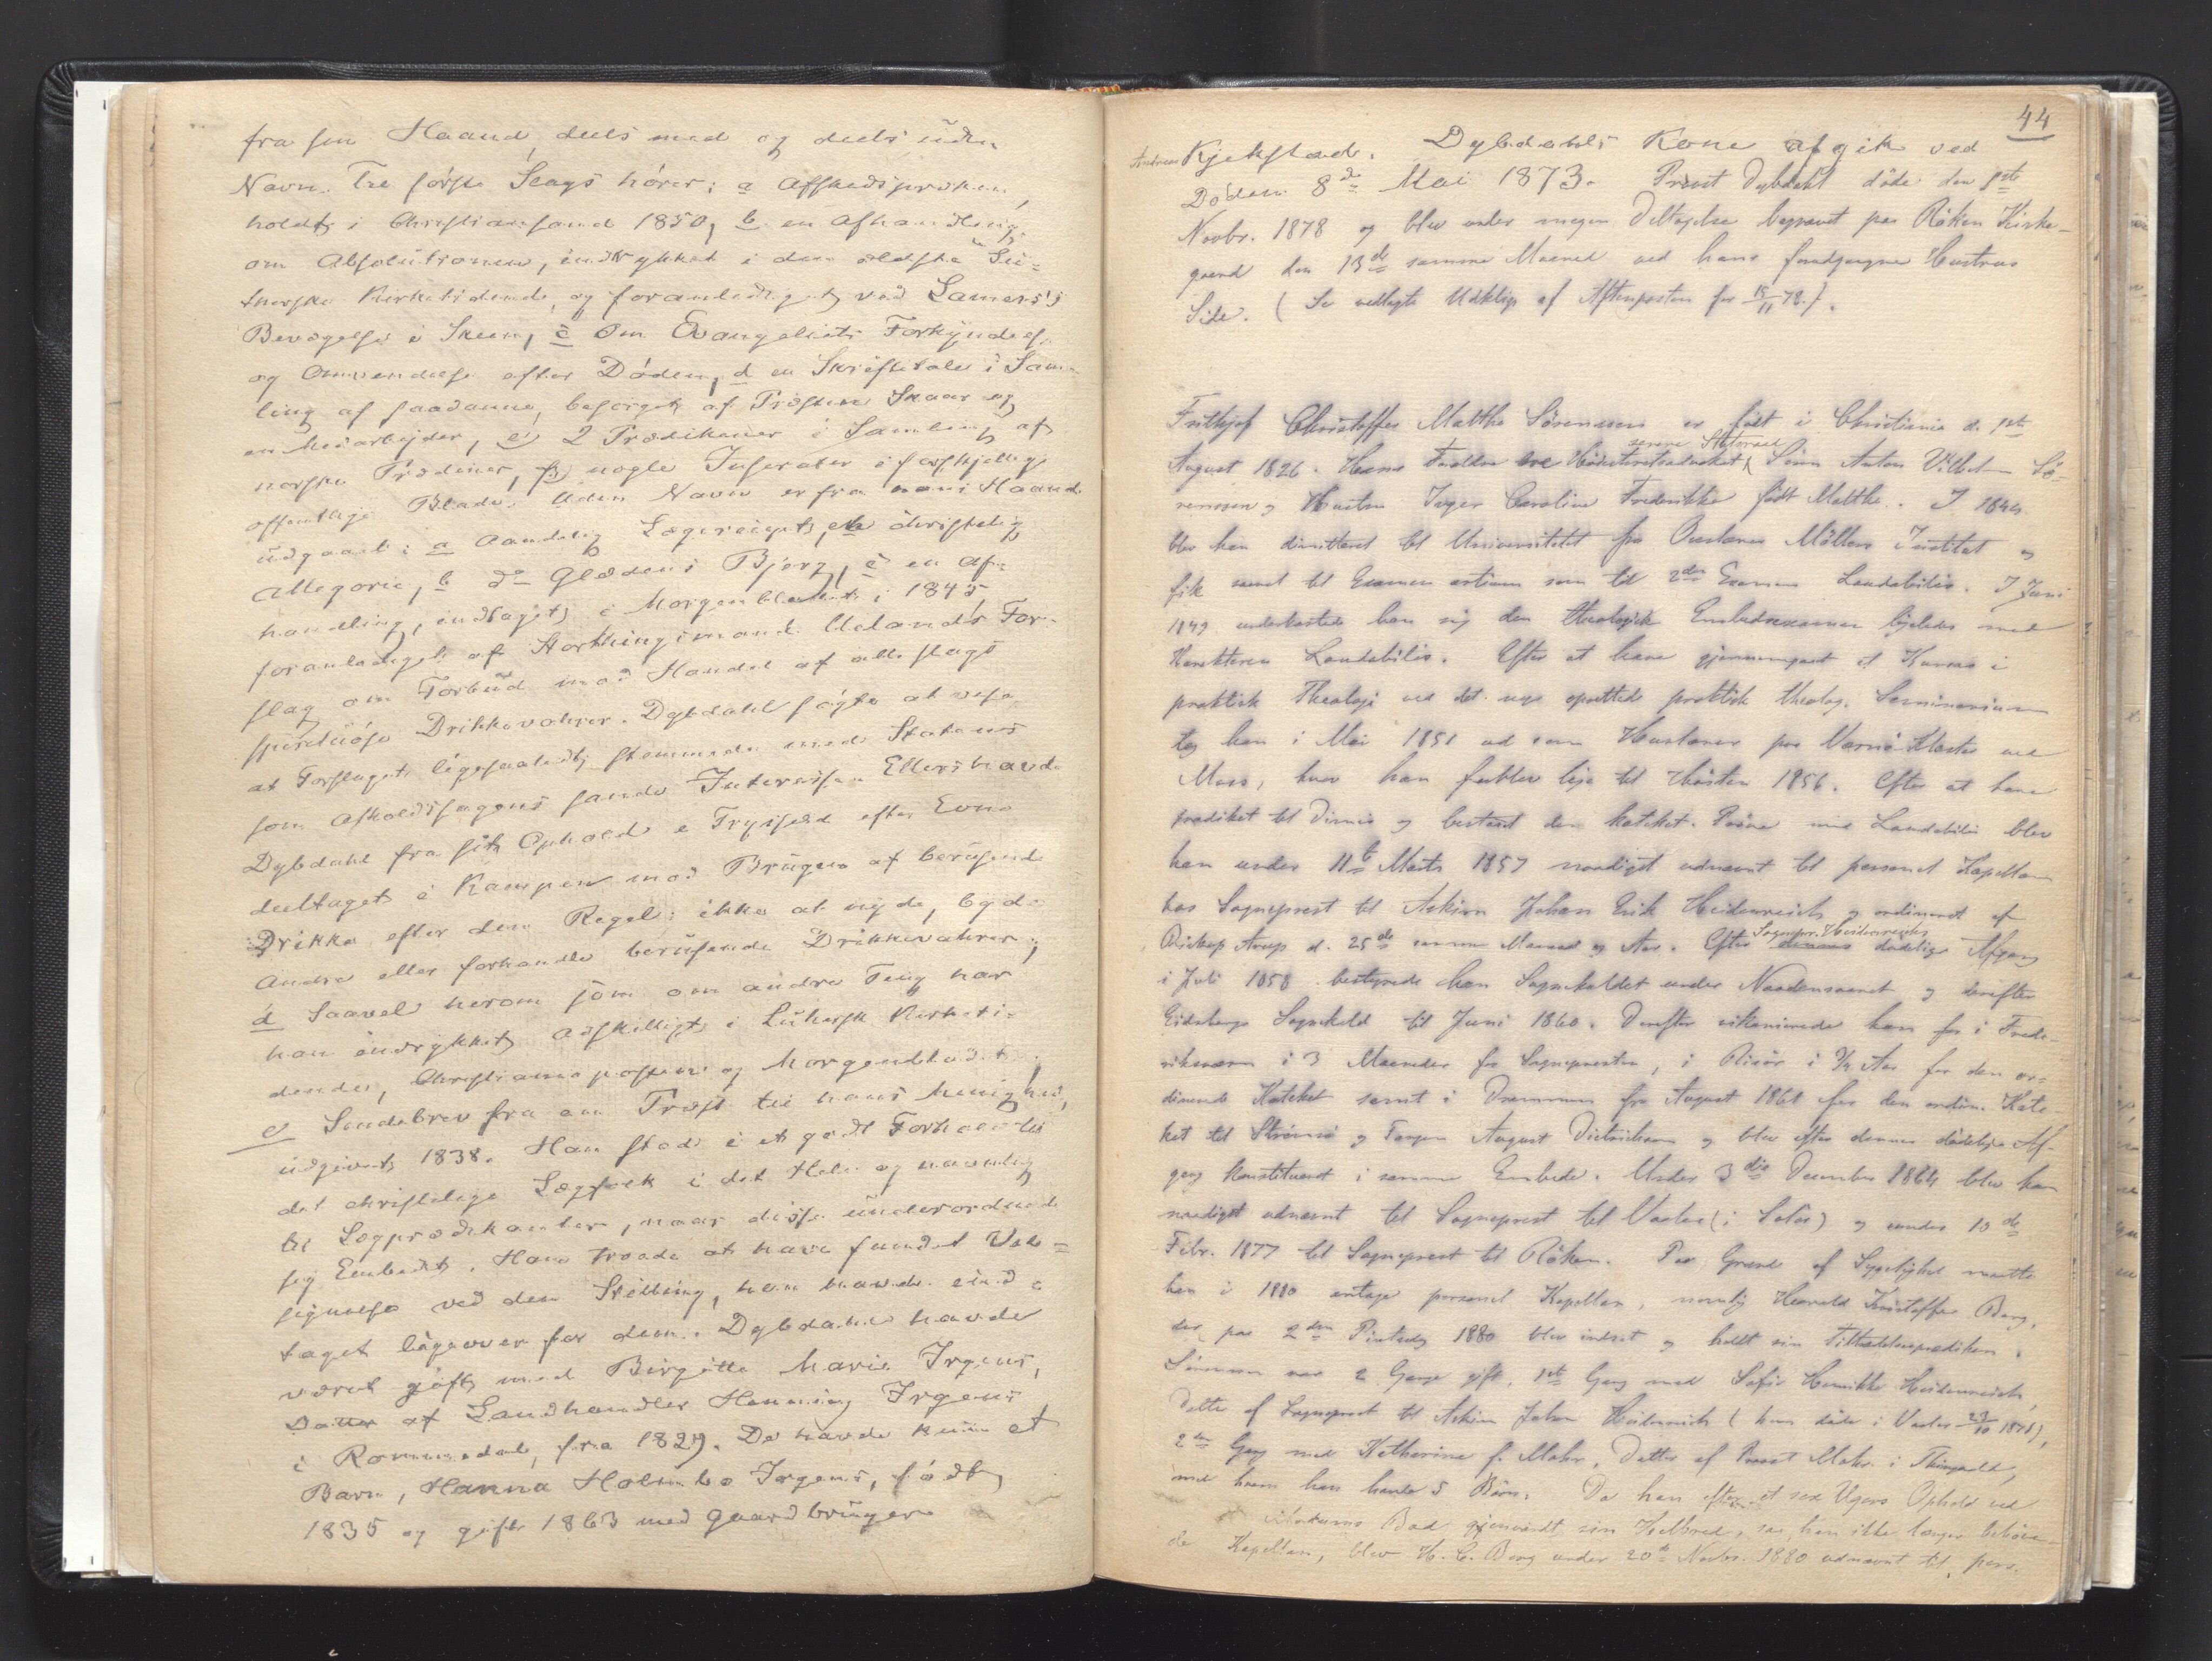 fra hans Haand, deels med og deels uden
Navn. Til første Slags hører: a Afskedsprædiken,
holdt i Christianssand 1850, b en Afhandling
om Absolutionen, indrykket i den ældste Lu-
therske Kirketidende, og foranlediget ved Lamers's
Bevægelse i Skien, c Om Evangeliets Forkyndelse
og Omvendelse efter Døden, d en Skriftetale i Sam-
ling af saadanne, besørget af Præsten Skaar og
en Medarbejder, e) 2 Prædikener i Samling af
norske Prædiker, f) nogle Inserater i forskjellige
offentlige Blade. Uden Navn er fra hans Haand
udgaaet: a Aandelig Lægerecept, en christelig
Allegorie, b do Glædens Bjerg, c en Af-
handling, indtaget i Morgenbladet i 1845,
foranlediget af Storthingsmand Uelands For-
slag om Forbud mod Handel af alle slags
spirituøse Drikkevahrer. Dybdahl søgte at vise,
at Forslaget ligesaalidt stemmede med Statens
som Afholdssagens sande Interesse. Ellers havde
Dybdahl fra sit Ophold i Trysild efter Evne
deeltaget i Kampen mod Brugen af berusende
Drikke efter den Regel: ikke at nyde, byde
Andre eller forhandle berusende Drikkevahrer;
d Saavel herom som om andre Ting har
han indrykket adskilligt i Luthersk Kirketi-
dende, Christianiaposten og Morgenbladet;
e Sendebrev fra en Præst til hans Menighed,
udgivet 1838. Han stod i et godt Forhold til
det christelige Lægfolk i det Hele og navnlig
til Lægprædikanter, naar disse underordnede
sig Embedet. Han troede at have fundet Vel-
signelse ved den Stilling, han havde ind-
taget ligeover for dem. Dybdahl havde
været gift med Birgitte Marie Irgens,
Datter af Landhandler Henning Irgens
i Romsdal, fra 1829. De havde kun et
Barn, Hanna Holmbo Irgens, født
1835 og gift 1863 med Gaardbruger
44
Andreas Kjekstad. Dybdahls Kone afgik ved
Døden 8de Mai 1873. Provst Dybdahl døde den 8de
Novbr. 1878 og blev under megen Deltagelse begravet paa Røken Kirke-
gaard den 13de samme Maaned ved hans forudgangne Hustrus
Side. (Se vedlagte Udklip af Aftenposten for 15/11 78.).
Frithjof Christoffer Malthe Sørenssen er født i Christiania d. 1ste
August 1826. Hans Forældre ere Høiesteretsadvokat senere Statsraad Søren Anton Vilhelm Sø-
renssen og Hustru Inger Caroline Frederikke født Malthe. I 1844
blev han dimitteret til Universitetet fra Overlærer Møllers Institut og
fik samt til Examen artium som til 2den Examen Laudabilis. I Juni
1849 underkastede han sig den theologiske Embedsexamen ligeledes med
Karakteren Laudabilis. Efter at have gjennemgaaet et Kursus i
praktisk Theologi ved det nye oprettede praktisk theolog. Seminarium
tog han i Mai 1851 ud som Huslærer paa Værne Kloster ved
Moss, hvor han forblev lige til Høsten 1856. Efter at have
prædiket til Dimis og bestaaet den kateket. Prøve med Laudabilis blev
han under 11te Marts 1857 naadigst udnævnt til personel Kapellan
hos Sogneprest til Askim Johan Erik Heidenreich og ordineret af
Biskop Arup d. 25de samme Maaned og Aar. Efter Sognepr. Heidenreichs dødelige Afgang
i Juli 1858 bestyrede han Sognekaldet under Naadensaaret og derefter
Eidsbergs Sognekald til Juni 1860. Derefter vikarierede han for i Frede-
riksværn i 3 Maaneder for Sognepresten, i Risør i 3/4 Aar for den or-
dinerede Kateket samt i Drammen fra August 1861 for den ordin. Kate-
ket til Strømsø og Tangen August Dietrichson og blev efter dennes dødelige Af-
gang konstitueret i samme Embede. Under 3die December 1864 blev han
naadigst udnævnt til Sogneprest til Vaaler (i Solør) og under 10de
Febr. 1877 til Sogneprest til Røken. Paa Grund af Sygelighed maatte
han i 1880 antage personel Kapellan, nemlig Harald Kristoffer Berg,
der paa 2den Pintsedag 1880 blev indsat og holdt sin Tiltrædelsesprædiken.
Sørenssen var 2 Gange gift, 1ste Gang med Sofie Henrikke Heidenreich,
Datter af Sogneprest til Askim Johan Heidenreich (hun døde i Vaaler 23/10 1871),
2den Gang med Katharine f. Mohr, Datter af Provst Mohr i Thingvold,
med hvem han havde 5 Børn. Da han efter et sex Ugers Ophold ved
Modums Bad gjenvandt sin Helbred, saa han ikke længer behøve-
de Kapellan, blev H. C. Berg under 20de Novbr. 1880 udnævnt til pers.